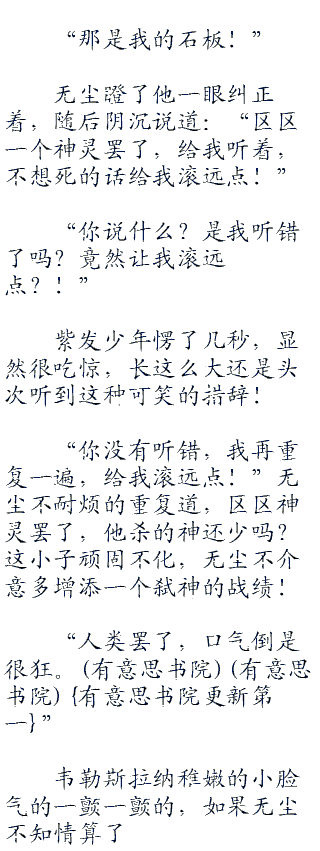 “那是我的石板！”
无尘瞪了他一眼纠正
着，随后阴沉说道：“区区
一个神灵罢了，给我听着，
不想死的话给我滚远点！”
“你说什么？是我听错
了吗？竟然让我滚远
点？！”
紫发少年愣了几秒，显
然很吃惊，长这么大还是头
次听到这种可笑的措辞！
“你没有听错，我再重
复一遍，给我滚远点！”无
尘不耐烦的重复道，区区神
灵罢了，他杀的神还少吗？
这小子顽固不化，无尘不介
意多增添一个弑神的战绩！
“人类罢了，口气倒是
很狂。(有意思书院)(有意思
书院){有意思书院更新第
一}”
韦勒斯拉纳稚嫩的小脸
气的一颤一颤的，如果无尘
不知情算了